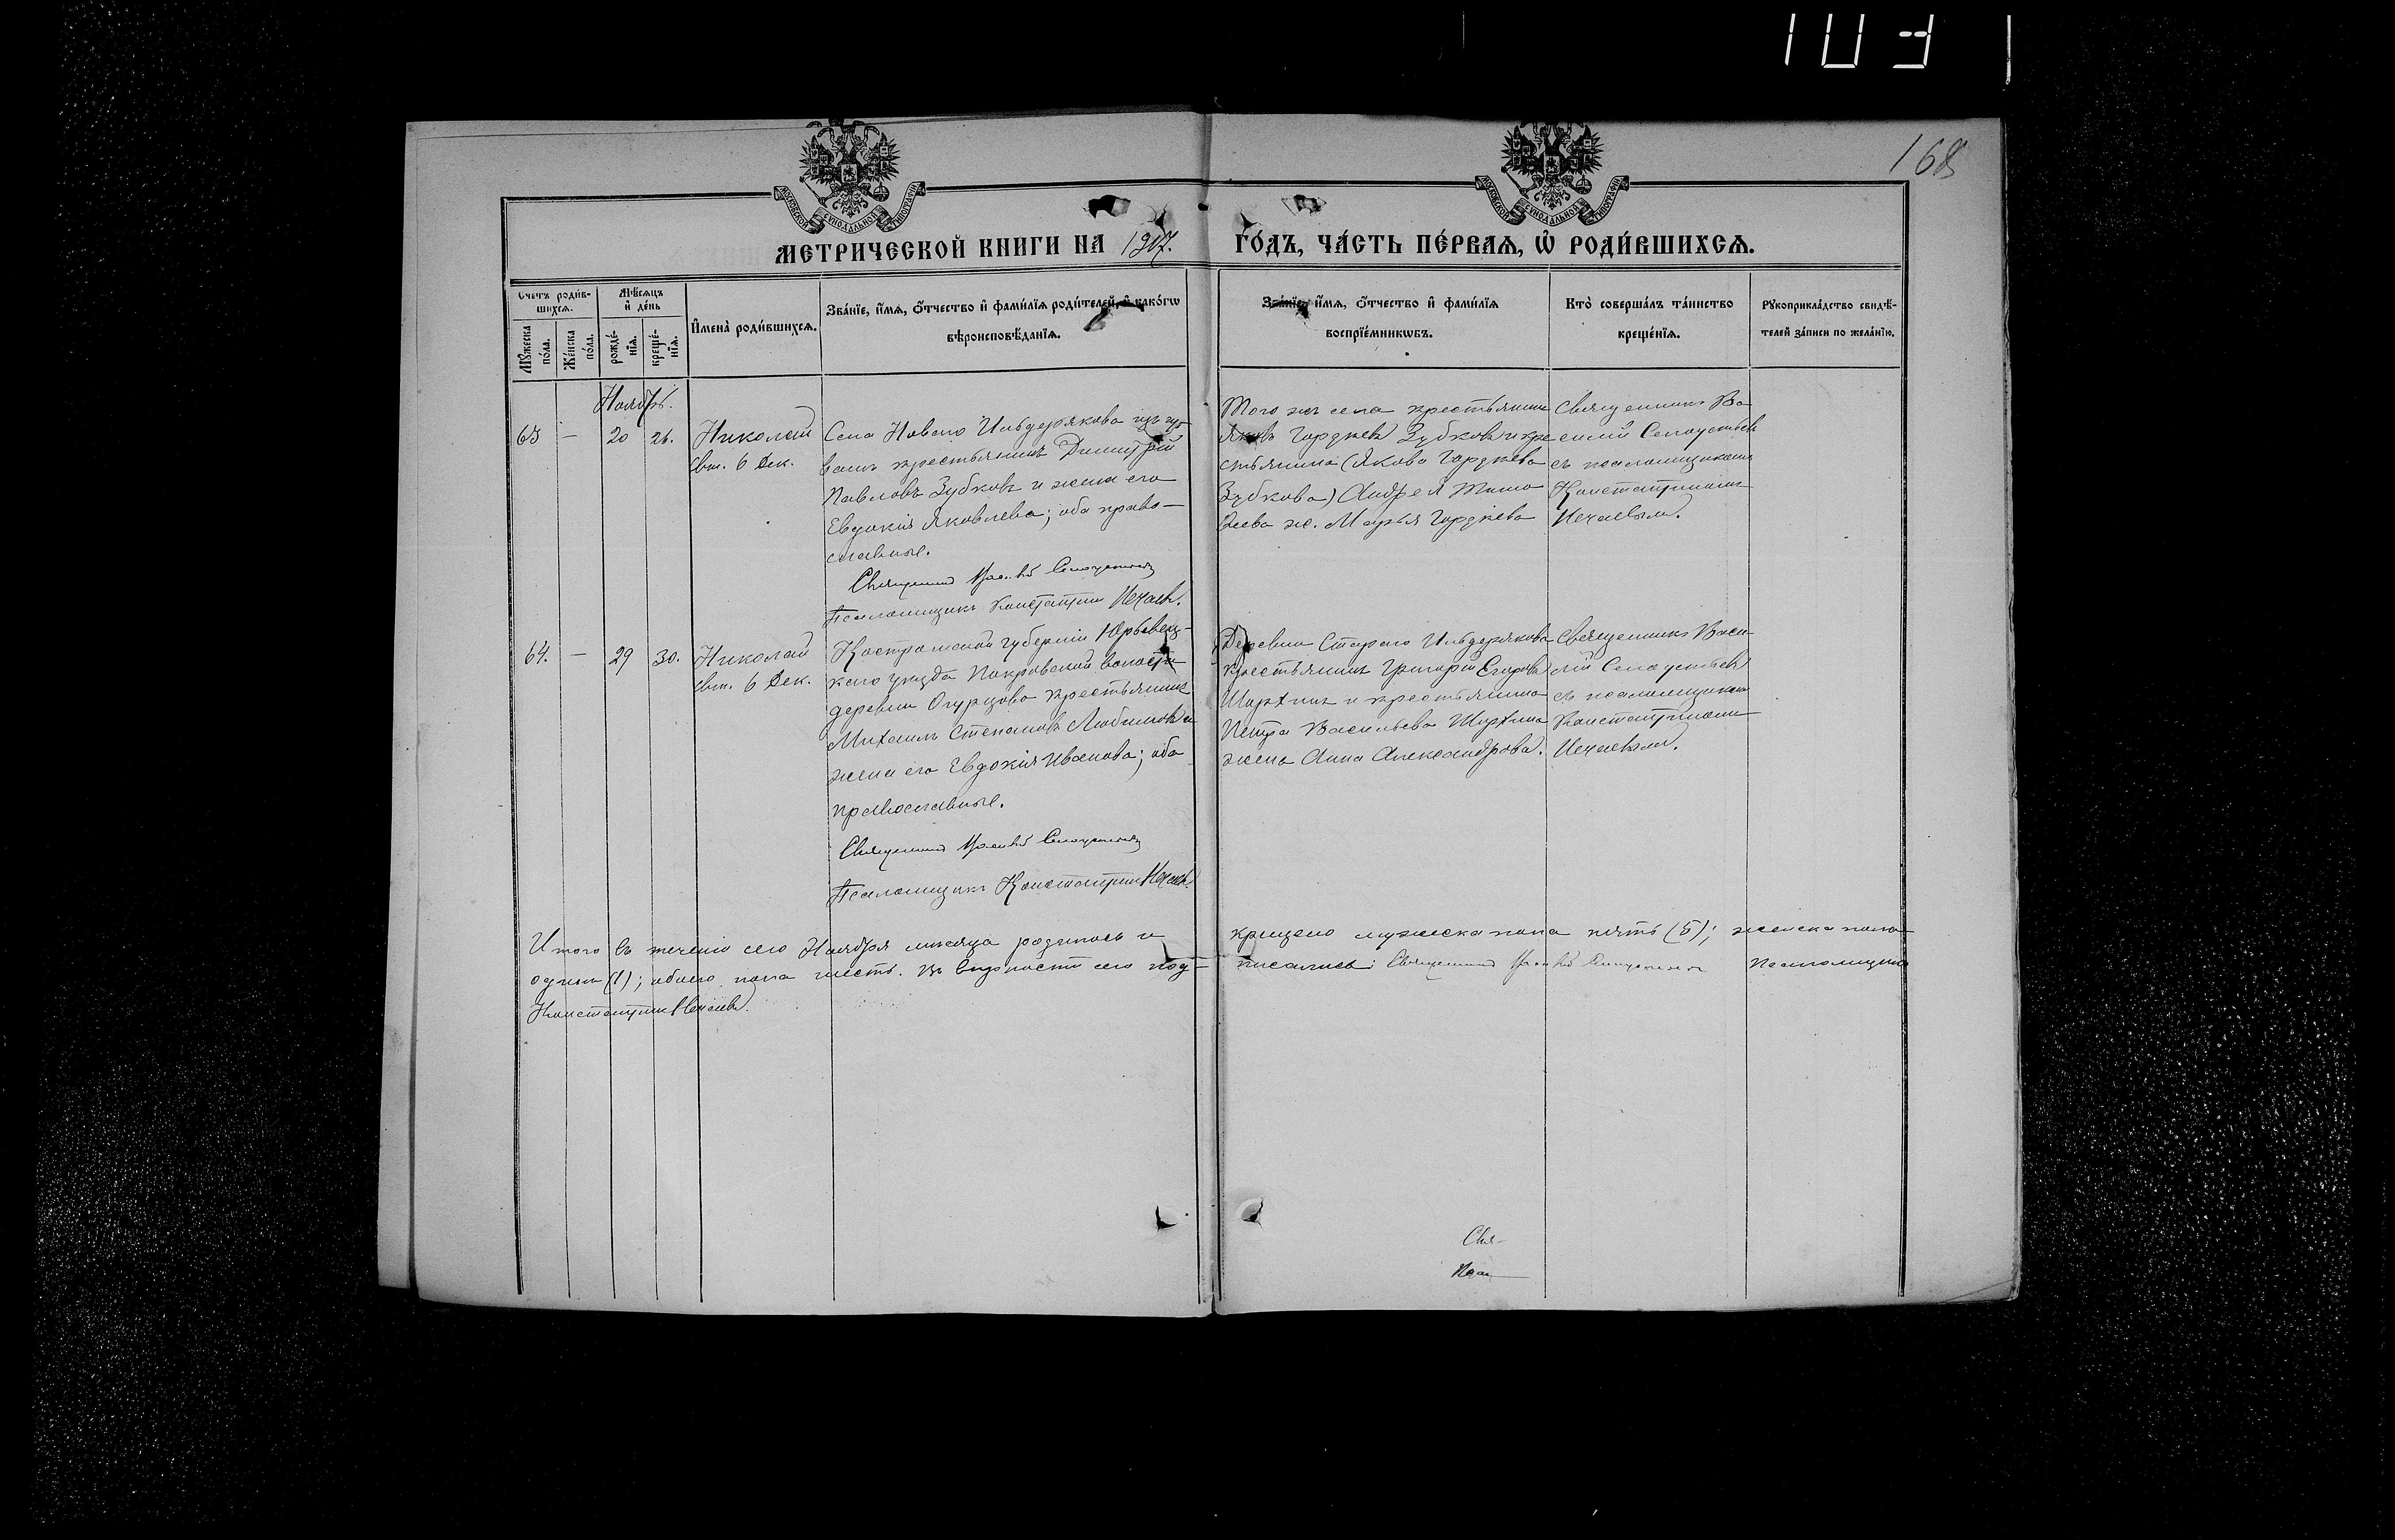 168
МОСКОВСКОЙ СѴНОДАЛЬНОЙ ТИПОГРАФІИ
МОСКОВСКОЙ СѴНОДАЛЬНОЙ ТИПОГРАФІИ
МЕТРИЧЕСКОЙ КНИГИ НА 1907. ГО́ДЪ, ЧА́СТЬ ПЕ́РВАѦ, Ѡ҆ РОДИ́ВШИХСѦ.
Счетъ роди́в-
шихсѧ.
Мꙋ́жеска по́ла.
Же́нска по́ла.
Мѣ́сѧцъ и҆ де́нь
рожде́-нїѧ.
креще́-нїѧ.
И҆мена̀ роди́вшихсѧ.
Зва́нїе, и҆́мѧ, ѻ҆́тчество и҆ фами́лїѧ роди́телей, и҆ како́гѡ
вѣроисповѣ́данїѧ.
Зва́нїе, и҆́мѧ, ѻ҆́тчество и҆ фами́лїѧ
воспрїе́мникѡвъ.
Кто̀ соверша́лъ та́инство
креще́нїѧ.
Рꙋкоприкла́дство свидѣ́-
телей за́писи по жела́нїю.
Ноябрь.
63 — 20 26. Николай
свт. 6 Дек.
Села Новаго Ильдерякова
крестьянинъ Димитрій
Павловъ Зубковъ и жена его
Евдокія Яковлева; оба право-
славные.
Священникъ
Псаломщикъ Константин Нечаевъ.
Того же села крестьянинъ
Яковъ Гордѣевъ Зубковъ и кре-
стьянина (Якова Гордѣева
Зубкова) Андрея Тимо-
ѳеева ж. Марья Гордѣева
Священникъ Ва-
силій
съ псаломщикомъ
Константиномъ
Нечаевым.
64. — 29 30. Николай
свт. 6 Дек.
Костромской губерніи Юрьевец-
каго уѣзда Покровской волости
деревни Огурцово крестьянинъ
Михаилъ Степановъ Любимовъ и
жена его Евдокія Иванова; оба
православные.
Священникъ
Псаломщикъ Константин Нечаевъ.
Деревни Стараго Ильдерякова
крестьянинъ Григорій Егоровъ
и крестьянина
Петра Васильева
жена Анна Александрова.
Священникъ Васи-
лій
съ псаломщикомъ
Константиномъ
Нечаевым.
Итого въ теченіи сего Ноября мѣсяца родилось и крещено мужеска пола пять (5); женска пола
один (1); обоего пола шесть. Въ сего под- писались: Священникъ Псаломщикъ
Константин Нечаевъ.
Свя-
Пса